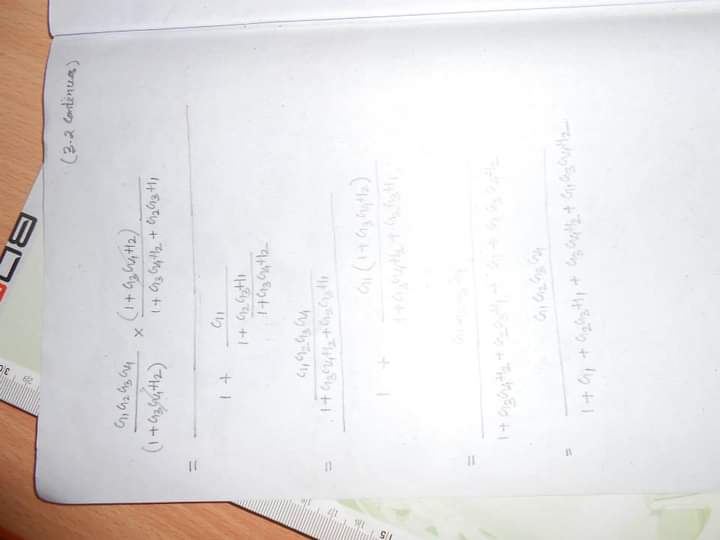 (3.2 Continues)
G₁G₂G₃G₄ / (1+G₃G₄H₂) × (1+G₃G₄H₂) / 1+G₃G₄H₂+G₂G₃H₁
=
1 + G₁ / 1+ G₂G₃H₁ / 1+G₃G₄H₂
G₁G₂G₃G₄
1+G₃G₄H₂+G₂G₃H₁
=
G₁(1+G₃G₄H₂)
1 +
1+G₃G₄H₂+G₂G₃H₁
=
1+G₃G₄H₂+G₂G₃H₁+G₁+G₁G₃G₄H₂
G₁G₂G₃G₄
=
1+G₁+G₂G₃H₁+G₃G₄H₂+G₁G₃G₄H₂
30
29
18
17
16
15